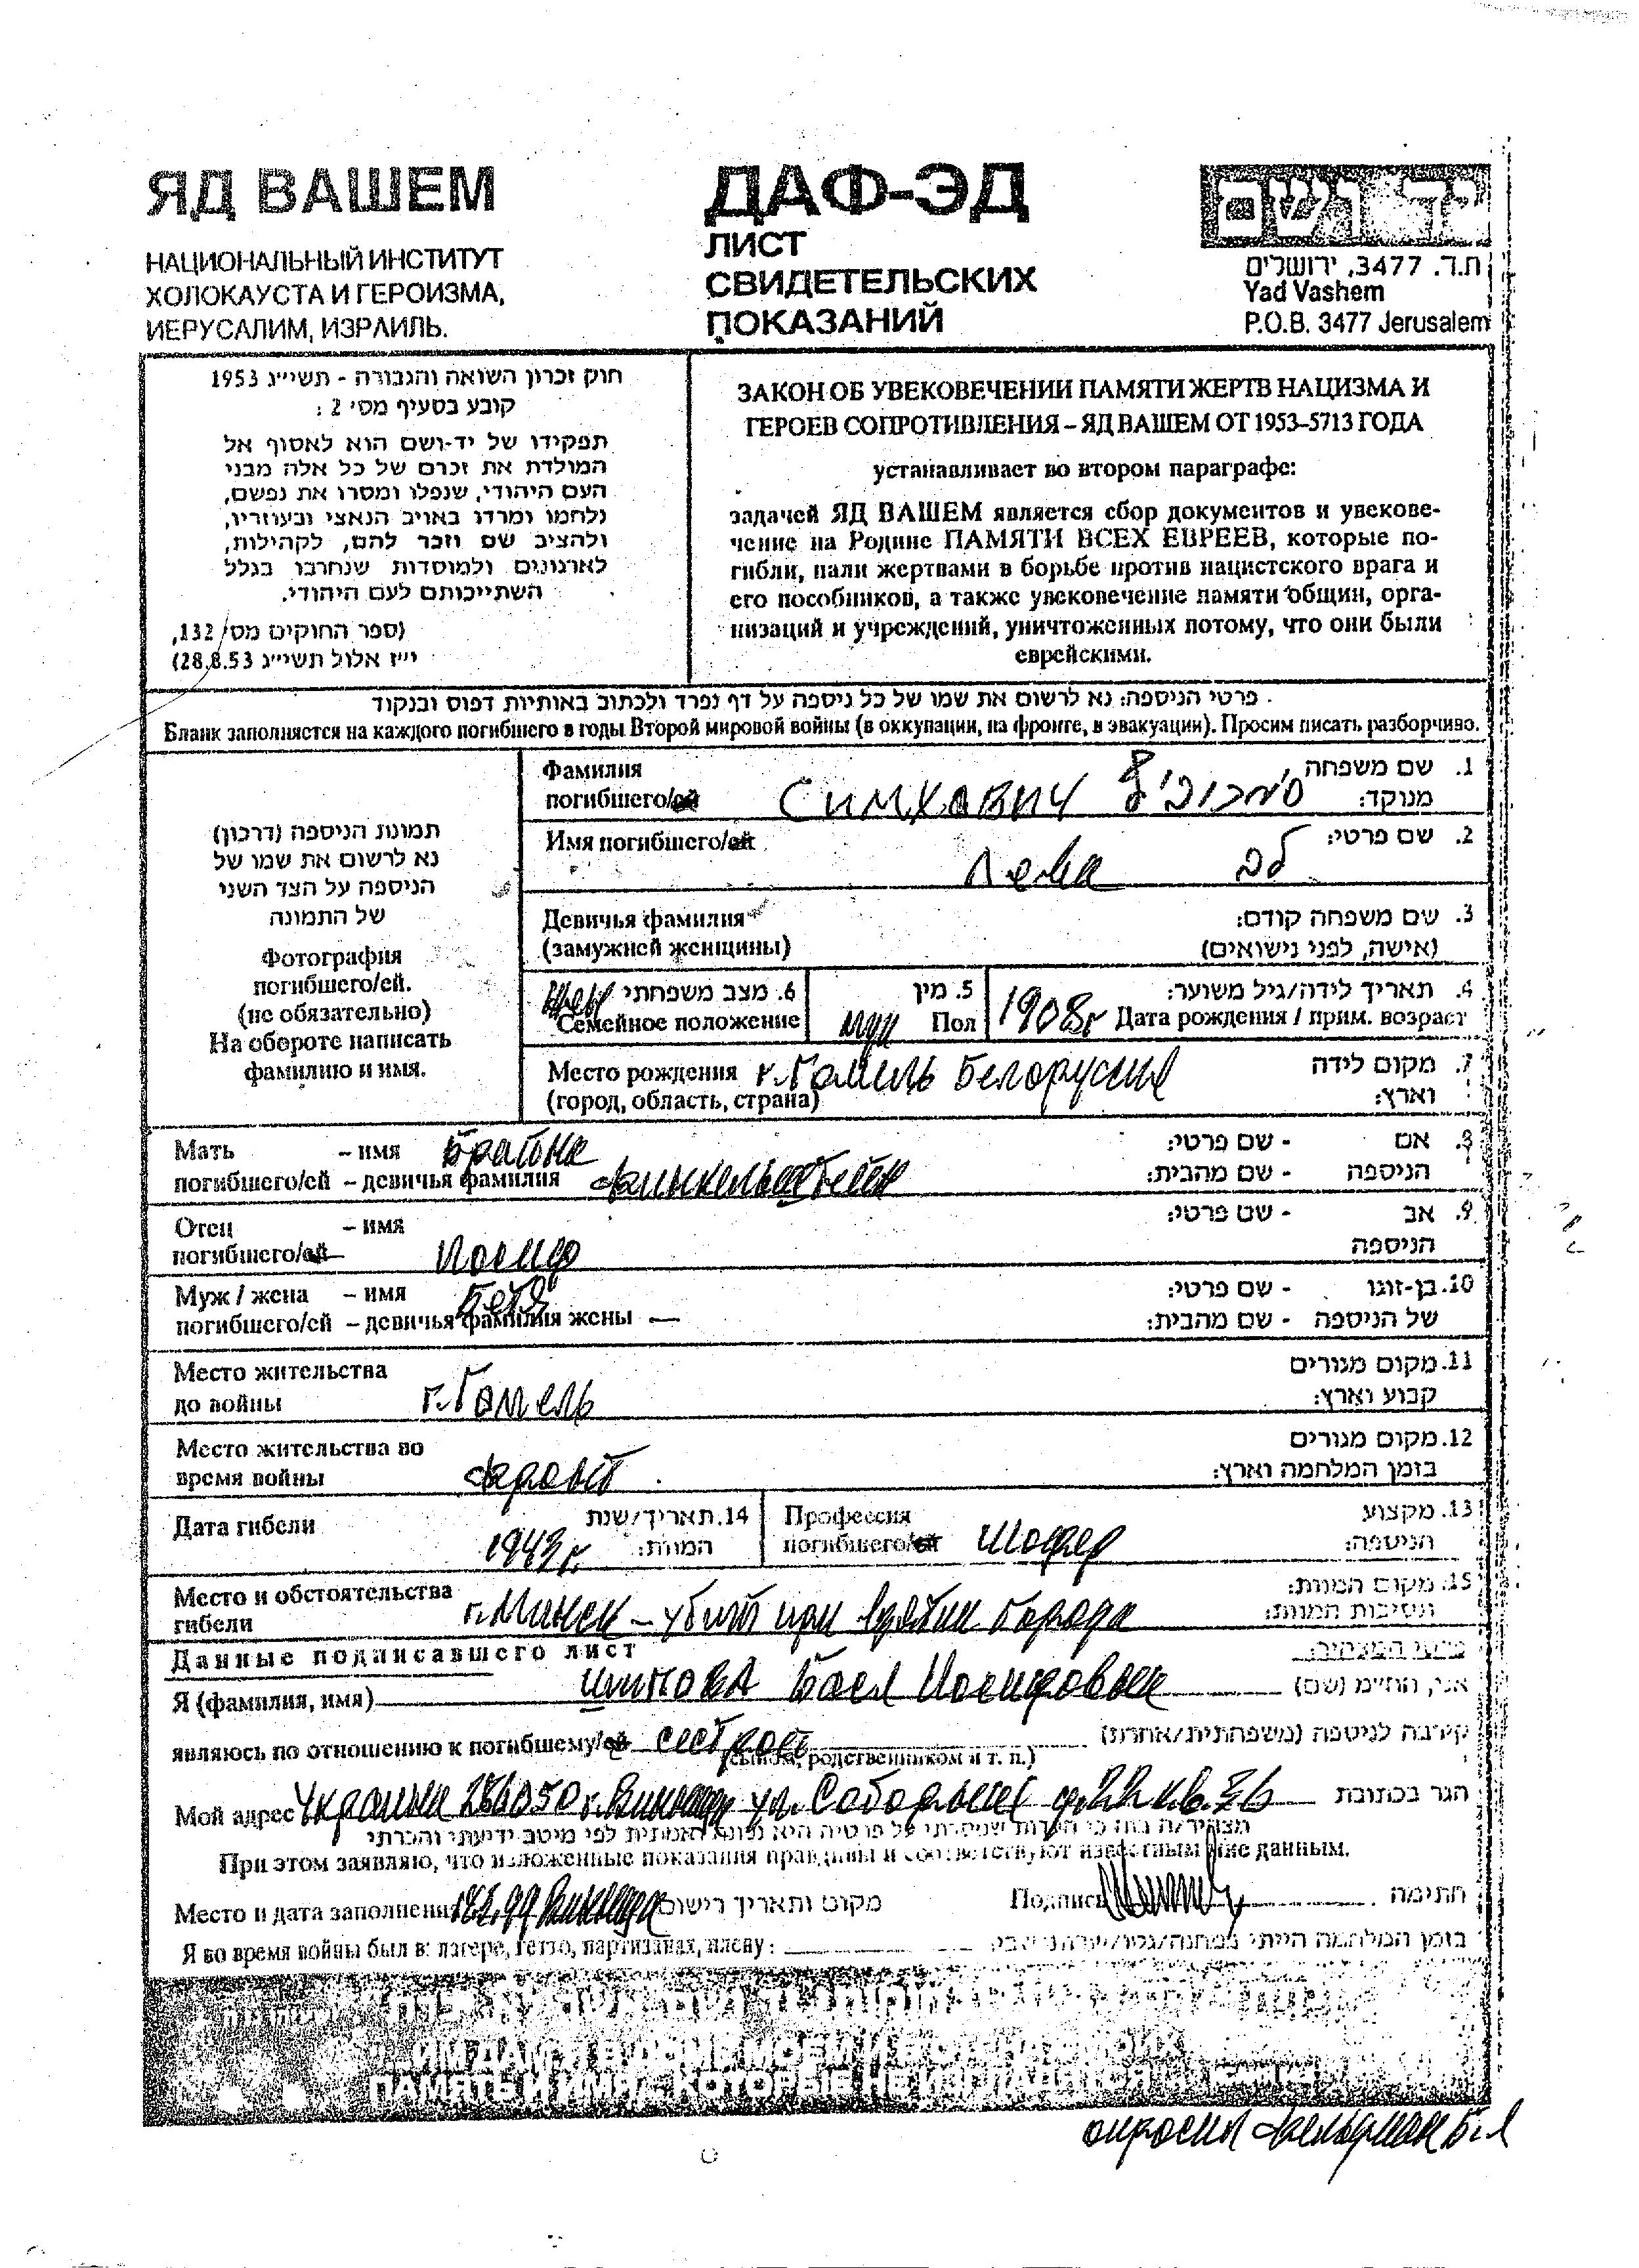 ЯД ВАШЕМ
НАЦИОНАЛЬНЫЙ ИНСТИТУТ
ХОЛОКАУСТА И ГЕРОИЗМА,
ИЕРУСАЛИМ, ИЗРАИЛЬ.
ДАФ-ЭД
ЛИСТ
СВИДЕТЕЛЬСКИХ
ПОКАЗАНИЙ
יד ושם
ת.ד. 3477, ירושלים
Yad Vashem
P.O.B. 3477 Jerusalem
חוק זכרון השואה והגבורה - תשי״ג 1953
קובע בסעיף מס׳ 2 :
תפקידו של יד-ושם הוא לאסוף אל
המולדת את זכרם של כל אלה מבני
העם היהודי, שנפלו ומסרו את נפשם,
נלחמו ומרדו באויב הנאצי ובעוזריו,
ולהציב שם וזכר להם, לקהילות,
לארגונים ולמוסדות שנחרבו בגלל
השתייכותם לעם היהודי.
(ספר החוקים מס׳ 132,
י״ז אלול תשי״ג 28.8.53)
ЗАКОН ОБ УВЕКОВЕЧЕНИИ ПАМЯТИ ЖЕРТВ НАЦИЗМА И
ГЕРОЕВ СОПРОТИВЛЕНИЯ – ЯД ВАШЕМ ОТ 1953–5713 ГОДА
устанавливает во втором параграфе:
задачей ЯД ВАШЕМ является сбор документов и увекове-
чение на Родине ПАМЯТИ ВСЕХ ЕВРЕЕВ, которые по-
гибли, пали жертвами в борьбе против нацистского врага и
его пособников, а также увековечение памяти общин, орга-
низаций и учреждений, уничтоженных потому, что они были
еврейскими.
פרטי הניספה: נא לרשום את שמו של כל ניספה על דף נפרד ולכתוב באותיות דפוס ובנקוד.
Бланк заполняется на каждого погибшего в годы Второй мировой войны (в оккупации, на фронте, в эвакуации). Просим писать разборчиво.
תמונת הניספה (דרכון)
נא לרשום את שמו של
הניספה על הצד השני
של התמונה
Фотография
погибшего/ей.
(не обязательно)
На обороте написать
фамилию и имя.
Фамилия 1. שם משפחה
погибшего/ей СИМХОВИЧ סימכוביץ מנוקד:
Имя погибшего/ей 2. שם פרטי:
Лева לב
Девичья фамилия 3. שם משפחה קודם:
(замужней женщины) (אישה, לפני נישואים)
жен 6. מצב משפחתי 5. מין 4. תאריך לידה/גיל משוער:
Семейное положение муж Пол 1908г Дата рождения / прим. возраст
Место рождения г. Гомель Белоруссия 7. מקום לידה
(город, область, страна) וארץ:
Мать – имя Брайна 8. אם - שם פרטי:
погибшего/ей – девичья фамилия Финкельштейн הניספה - שם מהבית:
Отец – имя 9. אב - שם פרטי:
погибшего/ей Иосиф הניספה
Муж / жена – имя Бетя 10. בן-זוגו - שם פרטי:
погибшего/ей – девичья фамилия жены — של הניספה - שם מהבית:
Место жительства 11. מקום מגורים
до войны г. Гомель קבוע וארץ:
Место жительства во 12. מקום מגורים
время войны фронт בזמן המלחמה וארץ:
Дата гибели 14. תאריך/שנת Профессия 13. מקצוע
1943г. המוות: погибшего/ей Шофер הניספה:
Место и обстоятельства 15. מקום המוות:
гибели г. Минск – убит при взятии города ונסיבות המוות:
Данные подписавшего лист
Я (фамилия, имя) Бася Иосифовна אני, החי״מ (שם)
являюсь по отношению к погибшему/ей сестрой קירבה לניספה (משפחתית/אחרת)
(сыном, родственником и т. п.)
Мой адрес Украина г. Винница ул. Соборная הגר בכתובת
מצהיר/ה בזה כי העדות שמסרתי על פרטיה היא נכונה ואמתית לפי מיטב ידיעתי והכרתי
При этом заявляю, что изложенные показания правдивы и соответствуют известным мне данным.
Место и дата заполнения Винница מקום ותאריך רישום Подпись חתימה
Я во время войны был в: лагере, гетто, партизанах, плену:
ИМ ДАМ Я В ДОМЕ МОЕМ И В СТЕНАХ МОИХ
ПАМЯТЬ И ИМЯ, КОТОРЫЕ НЕ ИЗГЛАДЯТСЯ
опросил Фельдман